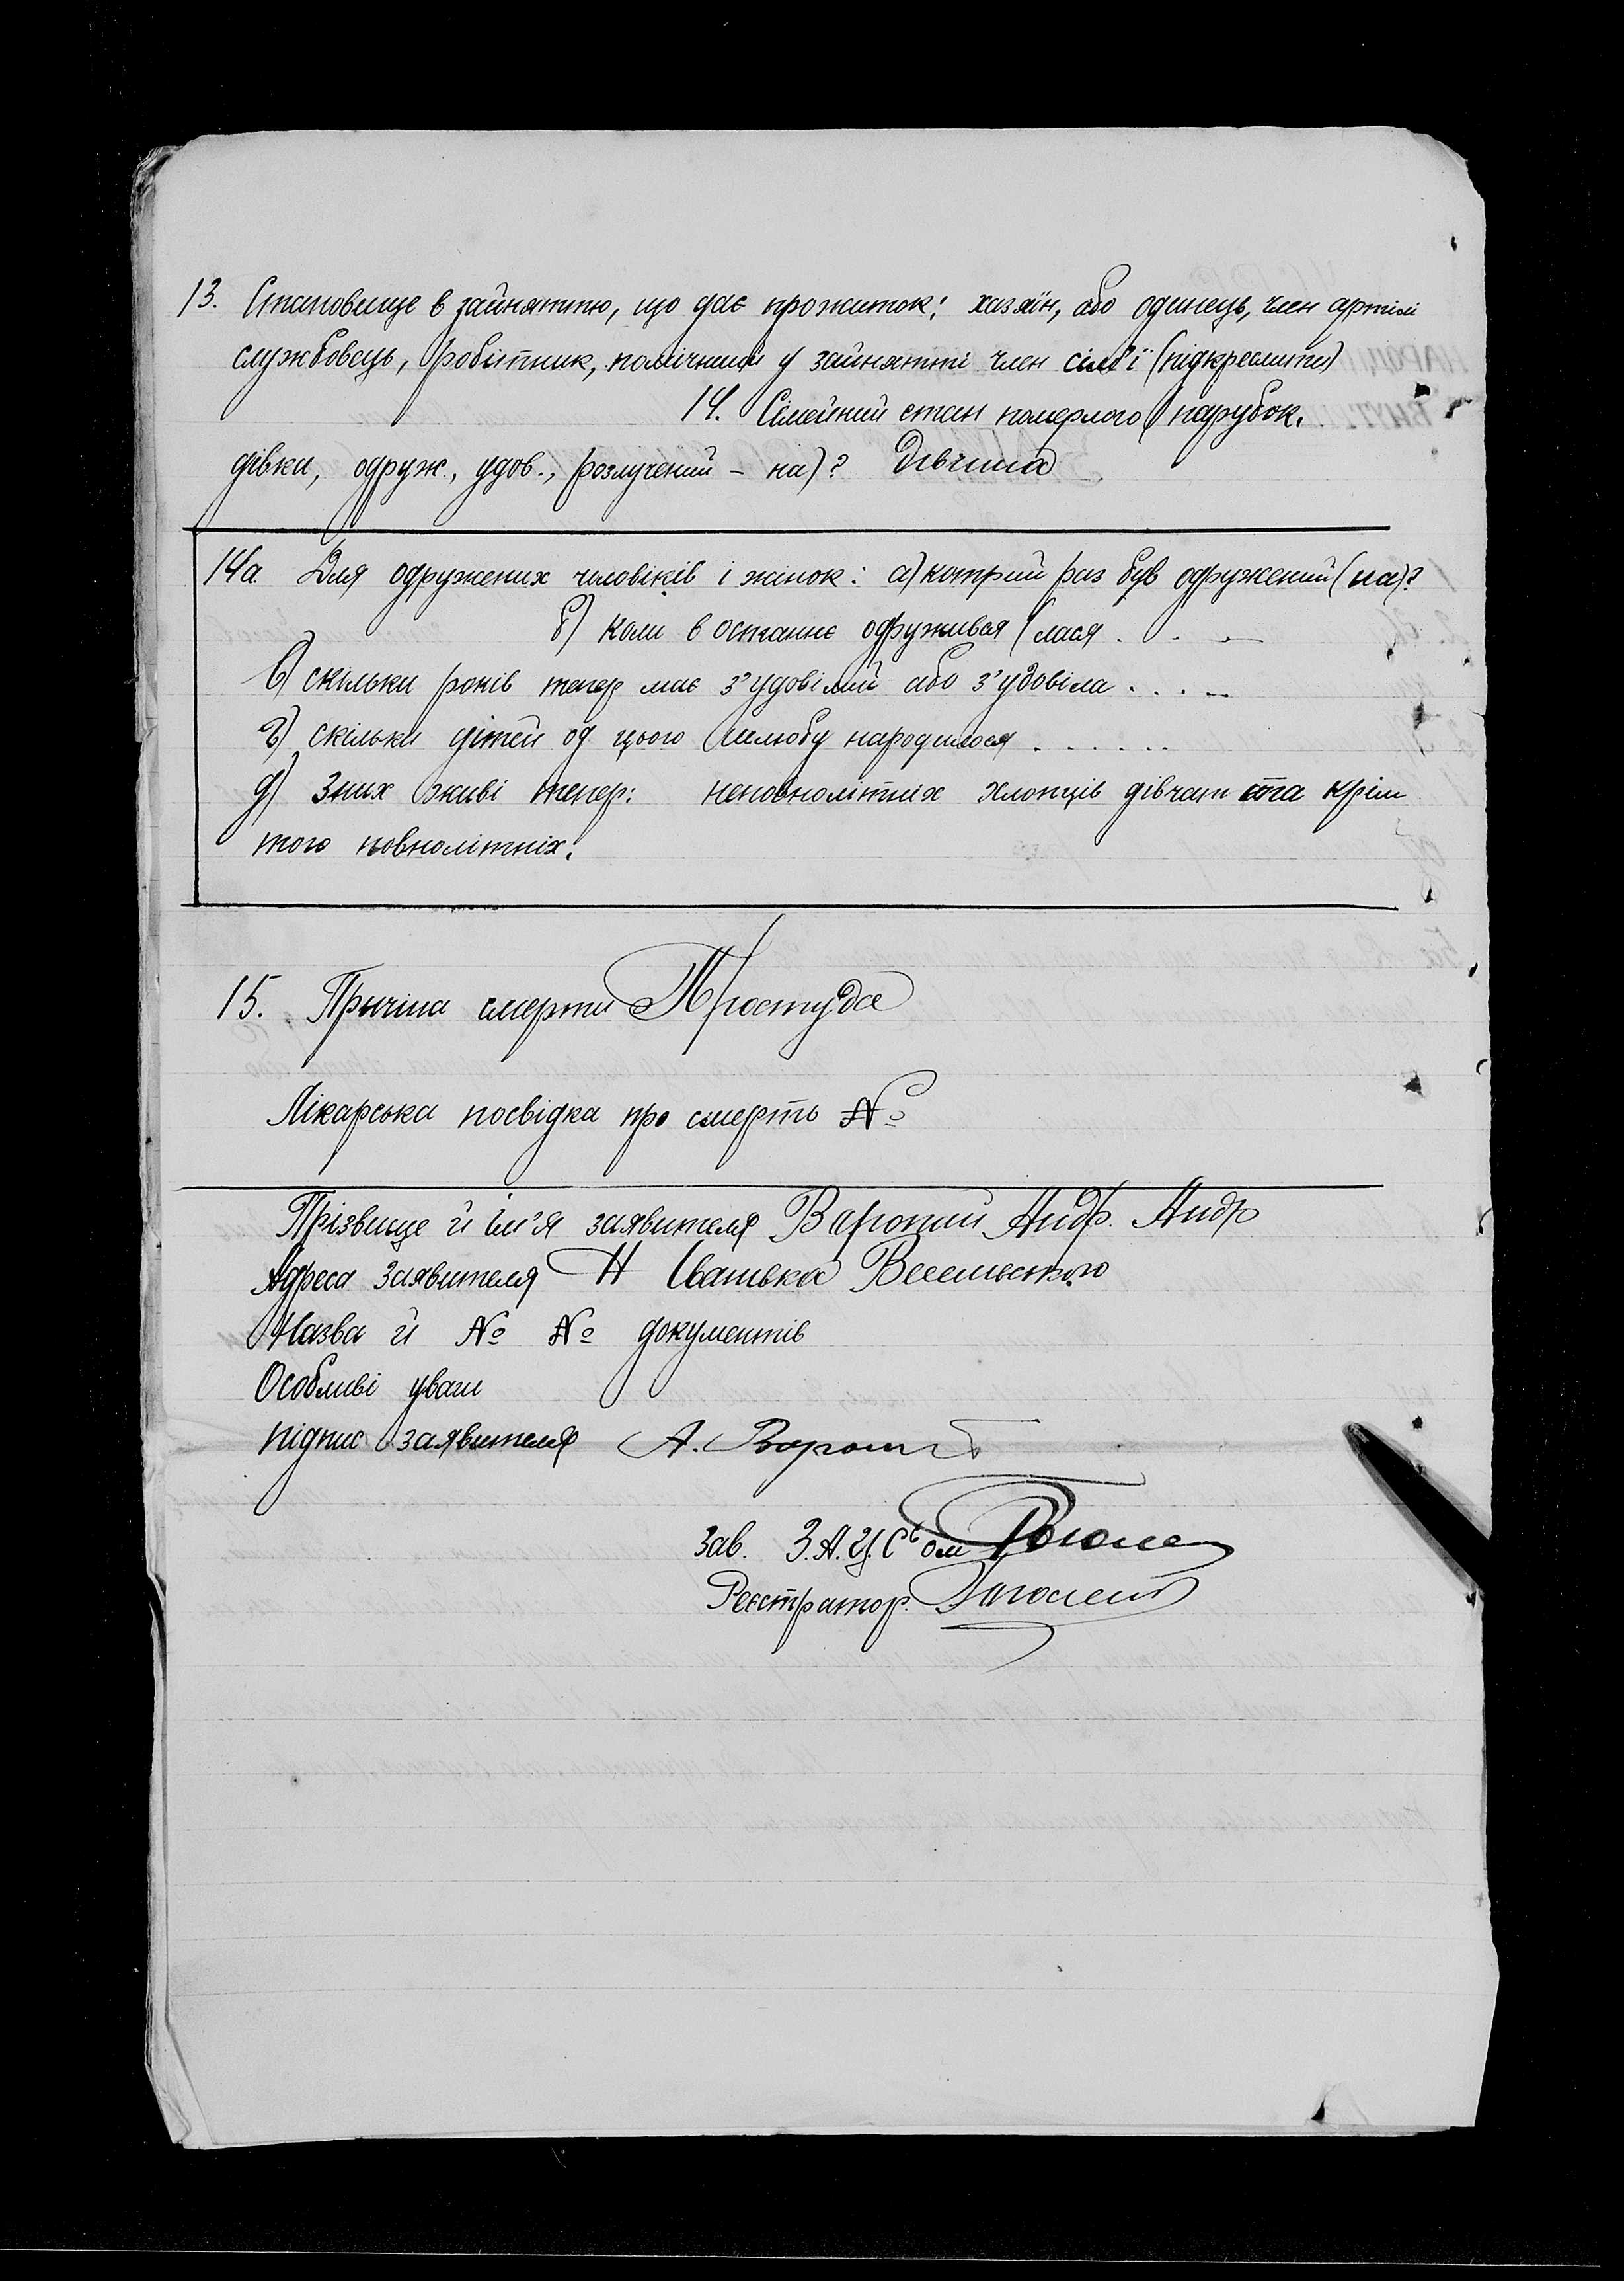 13. Становище в зайняттю, що дає прожиток: хазяїн, або одинець, член артілі
службовець, робитник, помічний у зайнятті член сімʼї (підкреслити)
14. Сімейний стан померлого (парубок.
дівка, одруж., удов., розлучений - на)? Дівчина
14а Для одружених чоловіків і жінок: а) котрий раз був одружений (на)?
б) коли в останнє одружився (лася . . .
в) скільки років тепер має з'удовілий або з'удовіла . . . .
г) скільки дітей од цього шлюбу народилося . . . . . .
д) З них живі тепер: неповнолітніх хлопців дівчат та крім
того повнолітніх.
15. Причина смерти Простуда
Лікарська посвідка про смерть №
Прізвище й ім'я заявителя Варопай Андр. Андр
Адреса заявителя Н Іванівка Весельського
Назва й № № документів
Особливі уваги
підпис заявителя А.
Зав. З.А.Ц.С'ом
Реєстратор.